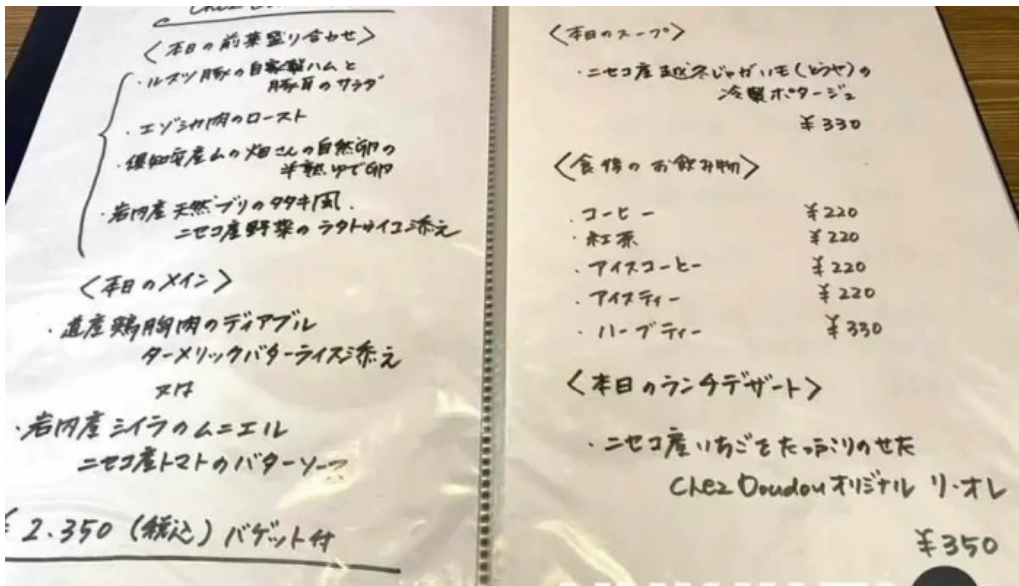 Chez Doudou
〈本日の前菜盛り合わせ〉
・ルスツ豚の自家製ハムと
豚耳のサラダ
・エゾシカ肉のロースト
・倶知安産山の畑さんの自然卵の
半熟ゆで卵
・岩内産天然ブリのタタキ風、
ニセコ産野菜のラタトゥイユ添え
〈本日のメイン〉
・道産鶏胸肉のディアブル
ターメリックバターライス添え
又は
・岩内産シイラのムニエル
ニセコ産トマトのバターソース
¥2.350 (税込) バゲット付
〈本日のスープ〉
・ニセコ産越冬じゃがいも(とうや)の
冷製ポタージュ
¥330
〈食後のお飲み物〉
・コーヒー ¥220
・紅茶 ¥220
・アイスコーヒー ¥220
・アイスティー ¥220
・ハーブティー ¥330
〈本日のランチデザート〉
・ニセコ産いちごをたっぷりのせた
Chez Doudouオリジナル リ・オレ
¥350